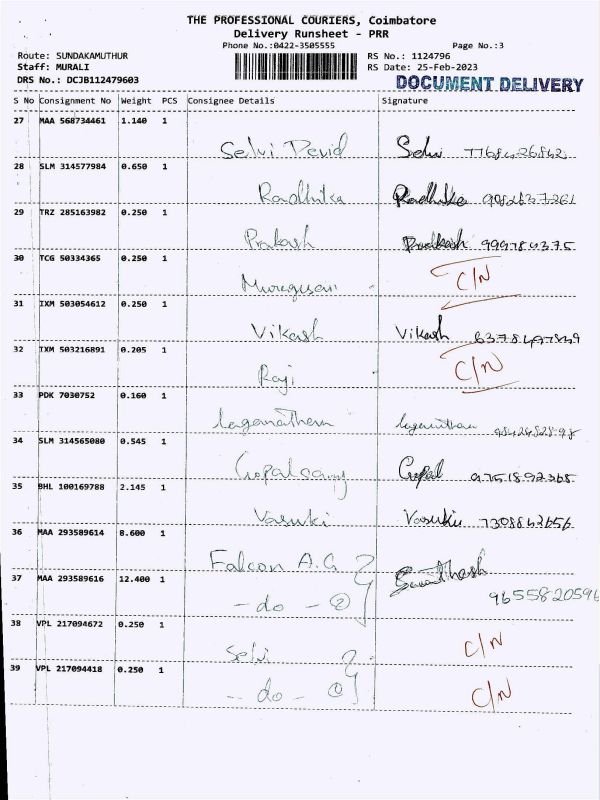 THE PROFESSIONAL COURIERS, Coimbatore
Delivery Runsheet - PRR
Phone No.:0422-3505555 Page No.:3
Route: SUNDAKAMUTHUR RS No.: 1124796
Staff: MURALI RS Date: 25-Feb-2023
DRS No.: DCJB112479603 DOCUMENT DELIVERY
S No Consignment No Weight PCS Consignee Details Signature
27 MAA 568734461 1.140 1
Selvi David Selvi
28 SLM 314577984 0.650 1
Radhika Radhika
29 TRZ 285163982 0.250 1
Prakash Prakash
30 TCG 50334365 0.250 1
C/N
31 IXM 503054612 0.250 1
Vikash Vikash
32 IXM 503216891 0.205 1
Raji C/N
33 PDK 7030752 0.160 1
34 SLM 314565080 0.545 1
Gopalsamy Gopal
35 BHL 100169788 2.145 1
Vasuki Vasuki 7308842656
36 MAA 293589614 8.600 1
Falcon A.G
37 MAA 293589616 12.400 1
- do - 9655820596
38 VPL 217094672 0.250 1
Selvi C/N
39 VPL 217094418 0.250 1
- do - C/N